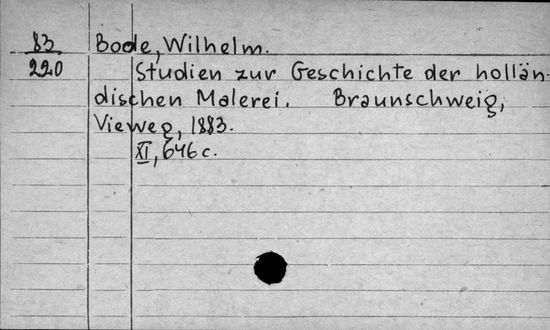 83
220
Bode, Wilhelm.
Studien zur Geschichte der hollän-
dischen Malerei. Braunschweig,
Vieweg, 1883.
XI, 646 c.